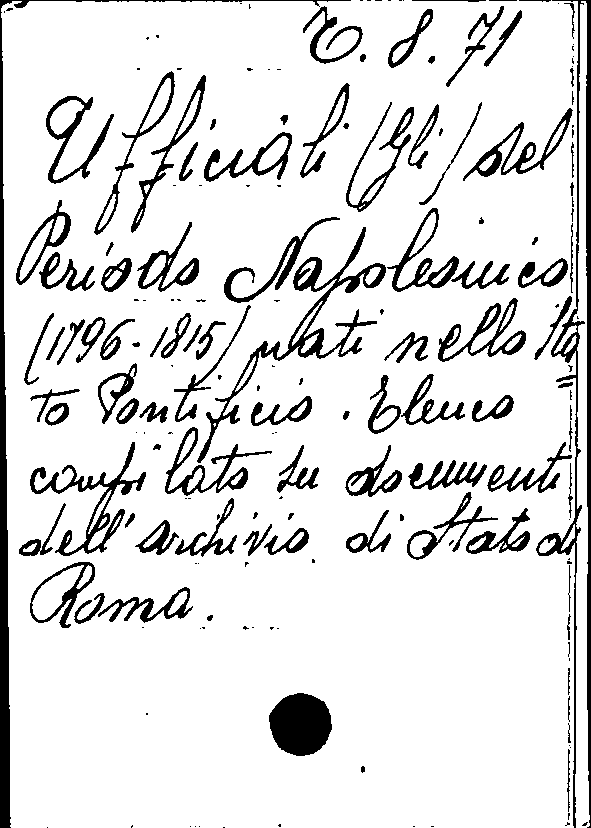 E. 8. 71
Ufficiali (Gli) del
Periodo Napoleonico
(1796-1815) nati nello Sta
to Pontificio. Elenco
compilato su documenti
dell'archivio di Stato di
Roma.